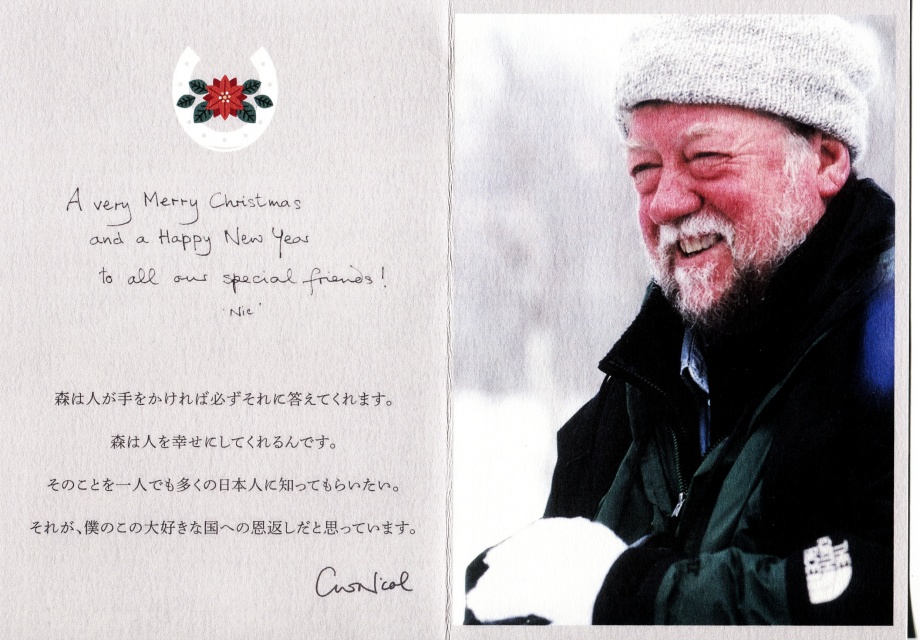 A very Merry Christmas
and a Happy New Year
to all our special friends!
'Nic'
森は人が手をかければ必ずそれに答えてくれます。
森は人を幸せにしてくれるんです。
そのことを一人でも多くの日本人に知ってもらいたい。
それが、僕のこの大好きな国への恩返しだと思っています。
CWNicol